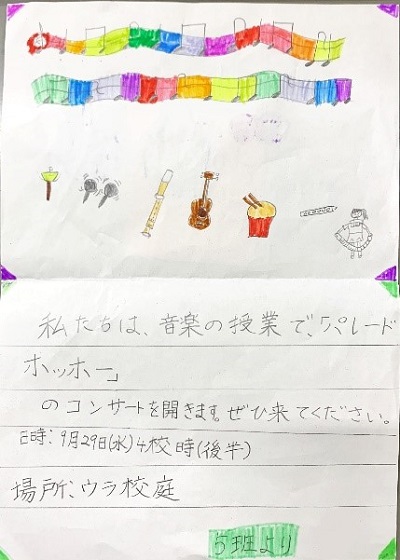 私たちは、音楽の授業で、「パレード
ホッホー」
のコンサートを開きます。ぜひ来てください。
日時:9月29日(水)4校時(後半)
場所:ウラ校庭
5班より